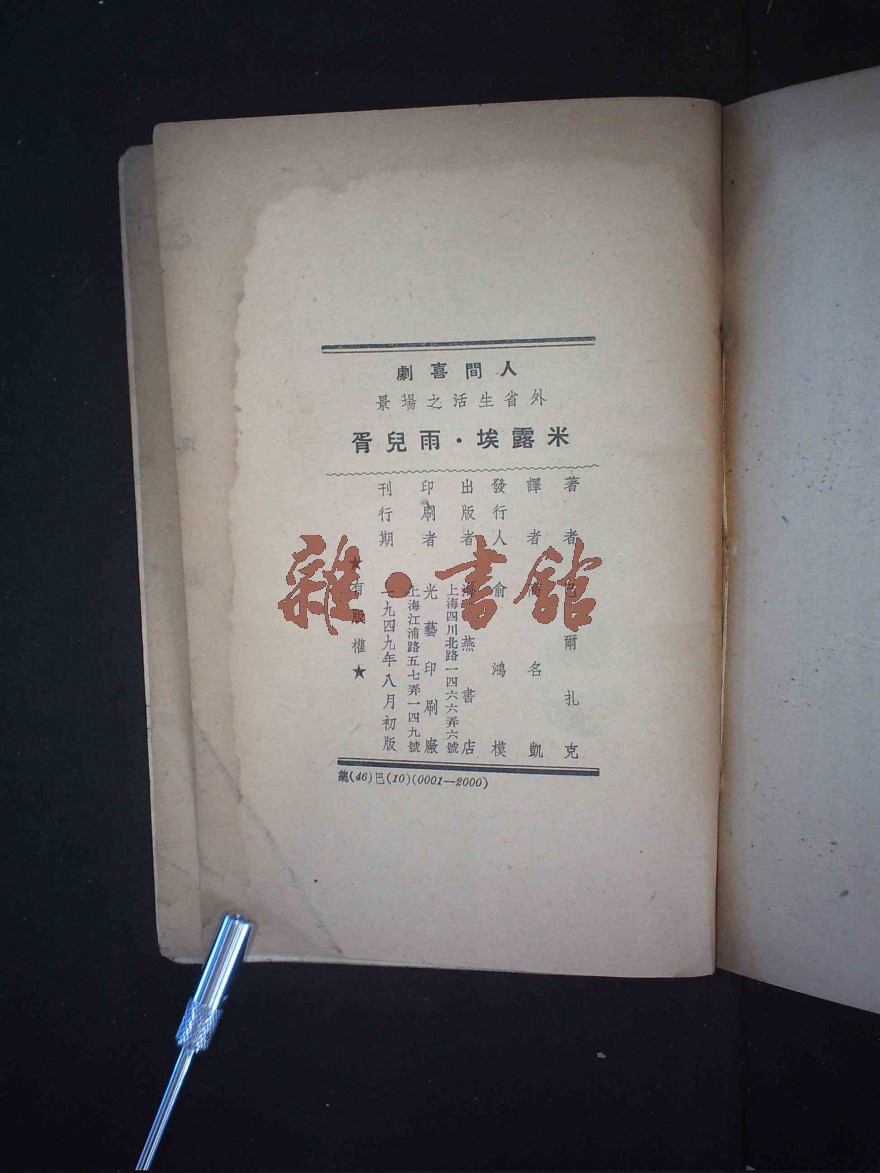 人間喜劇
外省生活之場景
米露埃·雨兒胥
著者 巴爾扎克
譯者 高名凱
發行人 俞鴻模
出版者 海燕書店
上海四川北路一四六六弄六號
印刷者 光藝印刷廠
上海江浦路五七弄一四九號
刊行期 一九四九年八月初版
★有版權★
(46)巴(10)(0001—2000)
雜·書館